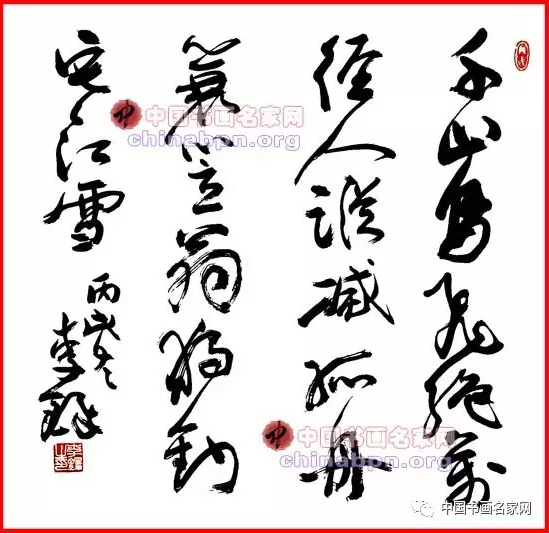 千山鳥飛絕萬
徑人蹤滅孤舟
蓑笠翁獨釣
寒江雪
丙戌冬
李鐸
中国书画名家网
chinabpn.org
中国书画名家网
chinabpn.org
中国书画名家网